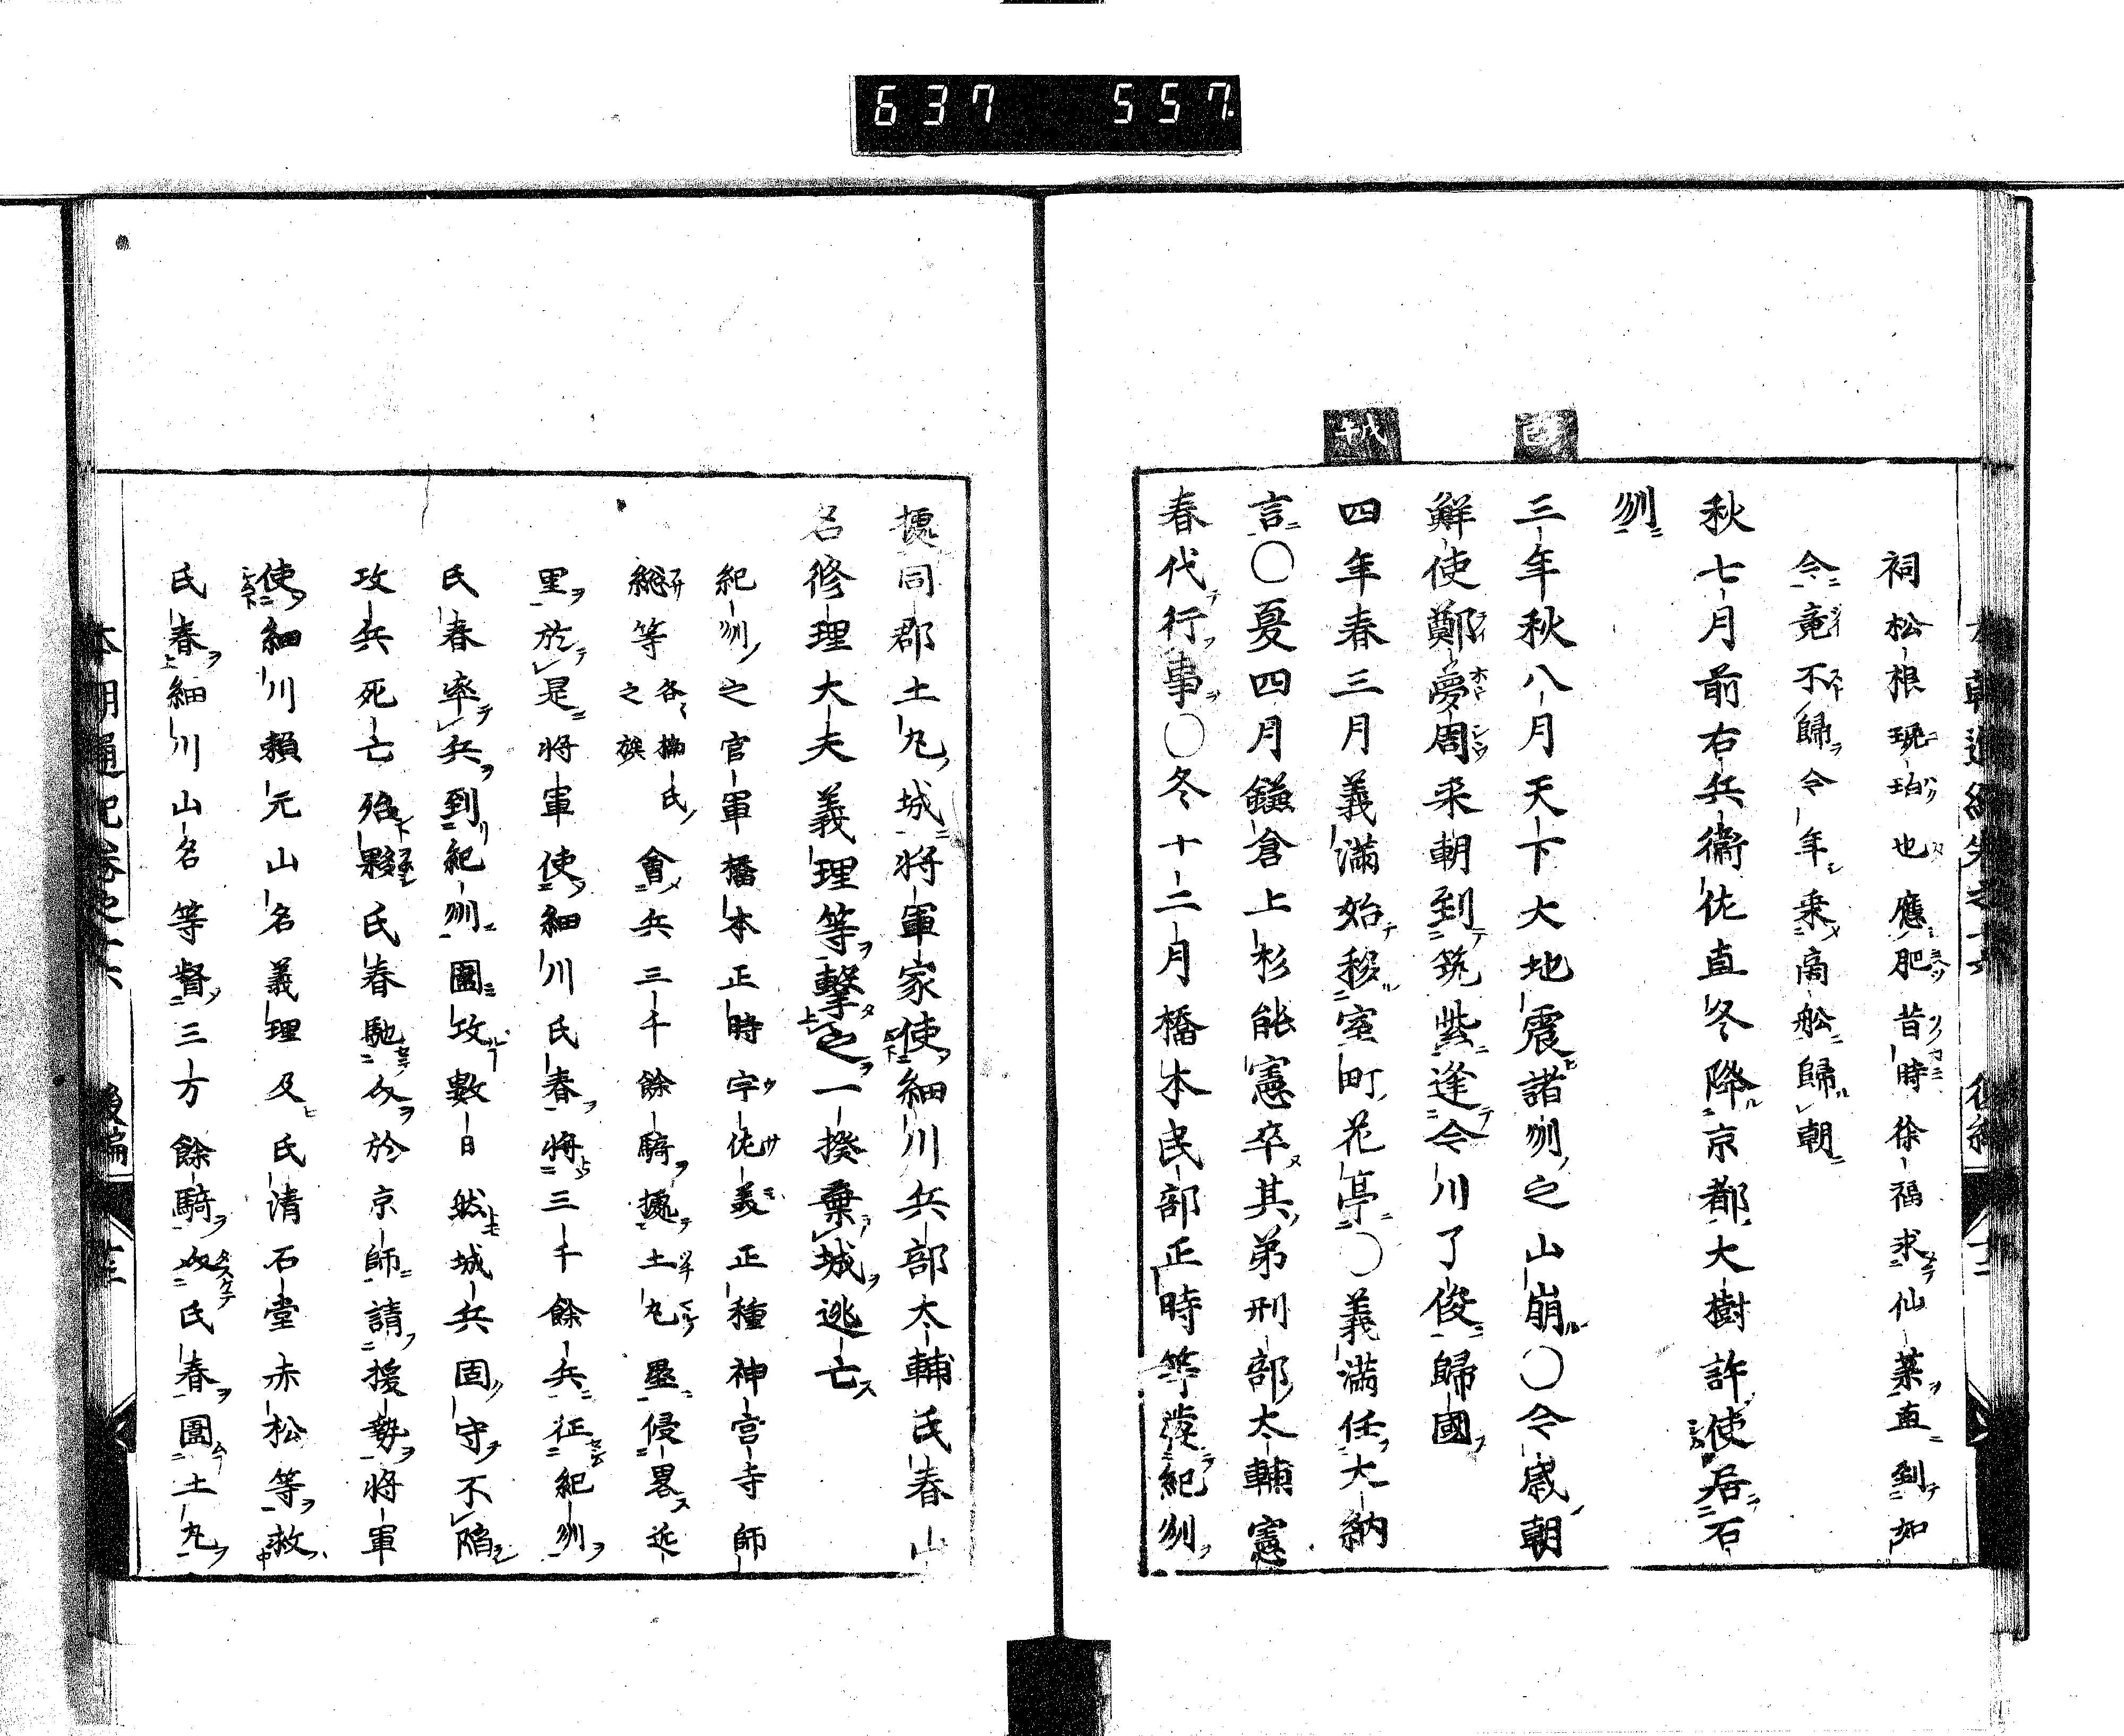 637 557.
祠松根琥珀也應肥昔時徐福求仙薬直到如
今竟不歸今年乗髙舩歸朝
秋七月前右兵衞佐直冬降京都大樹許使居石
刕
三年秋八月天下大地震諸刕之山崩〇今歳朝
鮮使鄭夢周來朝到筑紫逢今川了俊歸國
四年春三月義滿始移室町花亭〇義滿任大納
言〇夏四月鎌倉上杉能憲卒其弟刑部太輔憲
春代行事〇冬十二月橋本民部正時等発紀刕
㨿同郡土丸城將軍家使細川兵部太輔氏春山
名修理大夫義理等擊之一揆棄城逃亡
紀刕之官軍橋本正時宇佐義正種神宮寺師
総等各〻楠氏之族會兵三千餘騎㨿土丸壘侵畧近
里於是將軍使細川氏春將三千餘兵征紀刕
氏春率兵到紀刕圍攻數日然城兵固守不陥
攻兵死亡殆夥氏春馳使於京師請援勢將軍
使細川賴元山名義理及氏清石堂赤松等救
氏春細川山名等督三万餘騎扠氏春圍土丸
本朝通紀卷之十六 後編